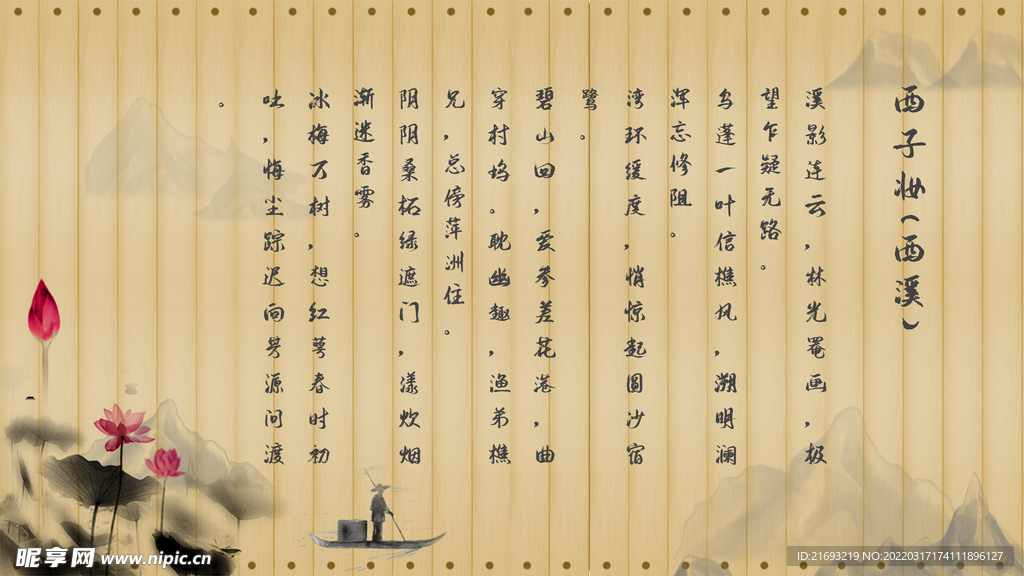 西子妆(西溪)
溪影连云，林光罨画，极
望乍疑无路。
乌蓬一叶信樵风，溯明澜
浑忘修阻。
湾环缓度，悄惊起圆沙宿
鹭。
碧山回，爱参差花港，曲
穿村坞。耽幽趣，渔弟樵
兄，总傍萍洲住。
阴阴桑柘绿遮门，漾炊烟
渐迷香雾。
冰梅万树，想红萼春时初
吐，悔尘踪迟向旯源问渡
。
昵享网 www.nipic.cn
ID:21693219 NO:20220317174111896127